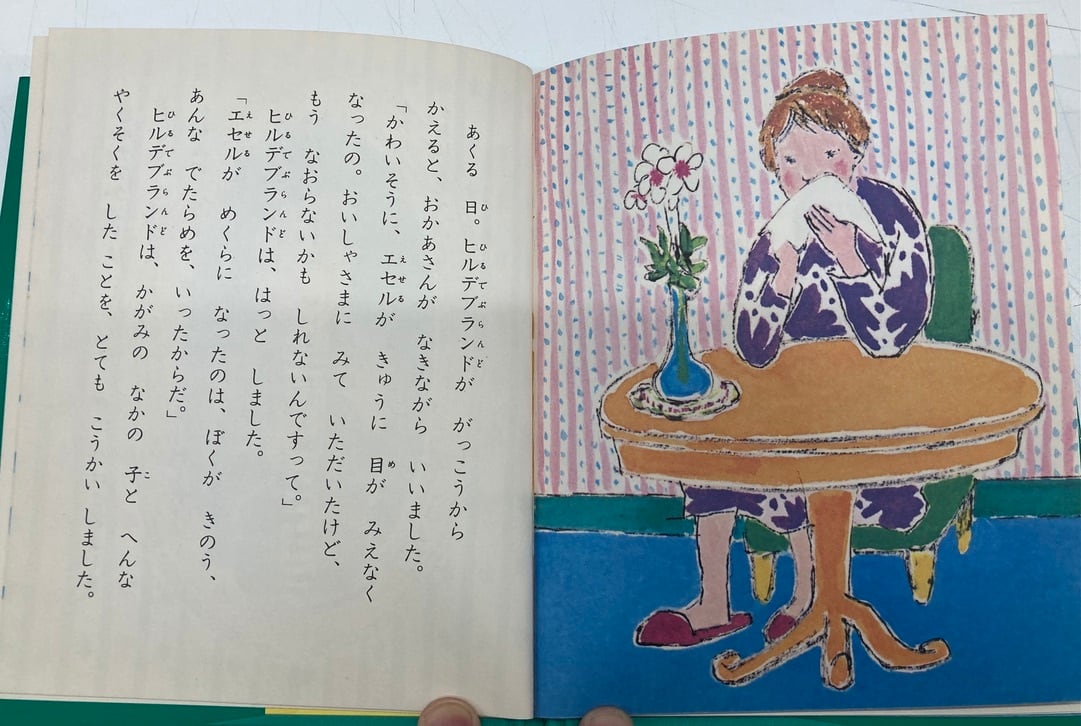 あくる　日。ヒルデブランドが　がっこうから
かえると、おかあさんが　なきながら　いいました。
「かわいそうに、エセルが　きゅうに　目が　みえなく
なったの。おいしゃさまに　みて　いただいたけど、
もう　なおらないかも　しれないんですって。」
ヒルデブランドは、はっと　しました。
「エセルが　めくらに　なったのは、ぼくが　きのう、
あんな　でたらめを、いったからだ。」
ヒルデブランドは、かがみの　なかの　子と　へんな
やくそくを　した　ことを、とても　こうかい　しました。